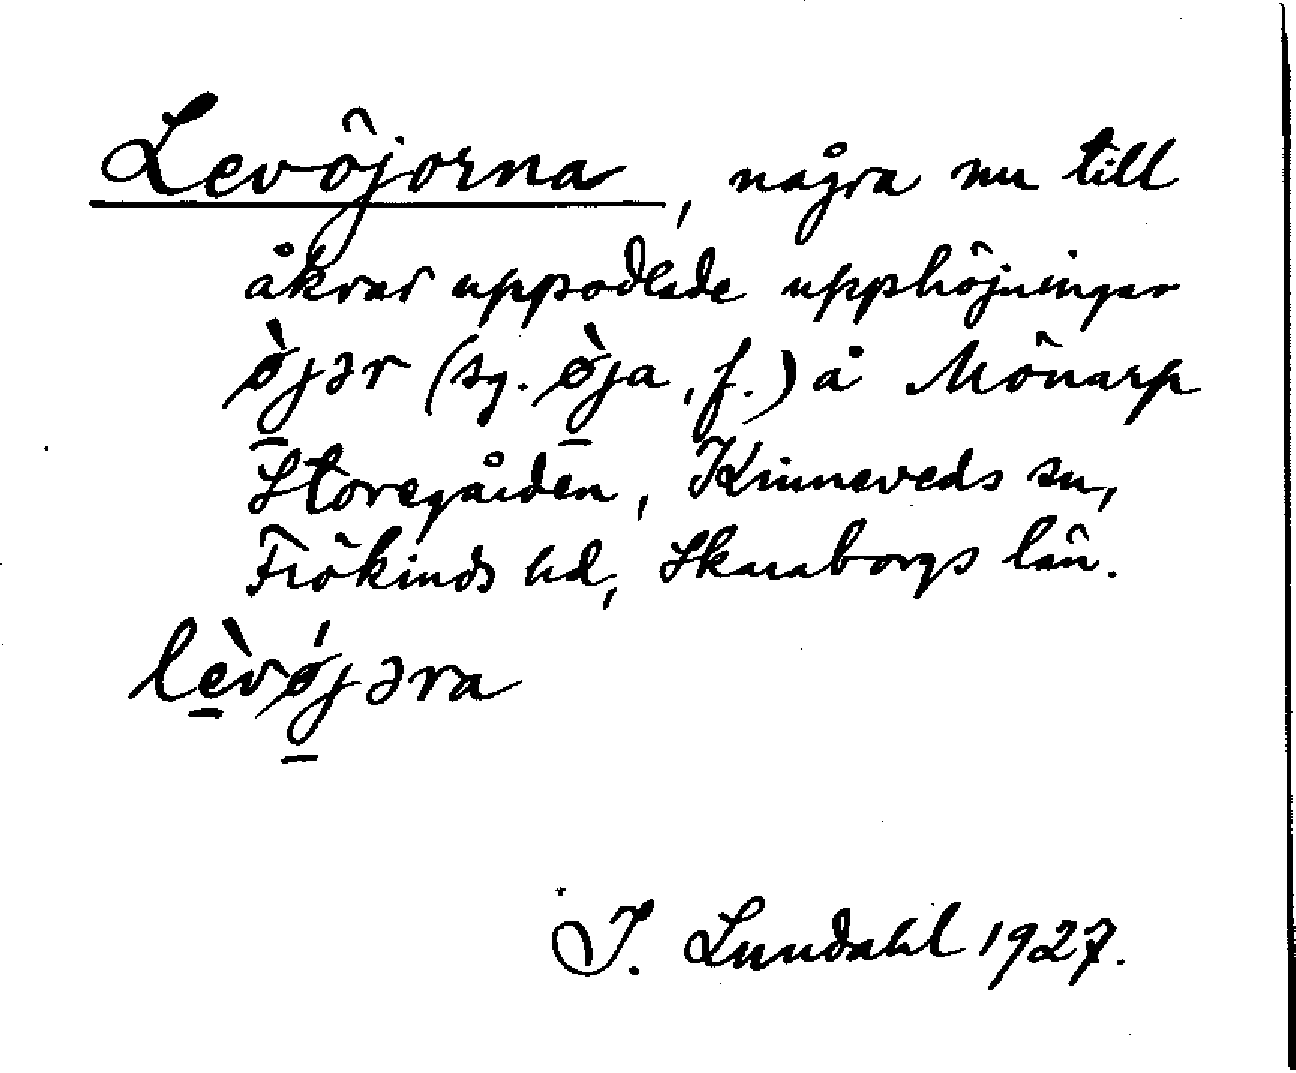 Levöjorna, några nu till
åkrar uppodlade upphöjningar
ø̀jər (sg. ø̀ja, f.) å Mönarp
Storegården, Kinneveds sn,
Frökinds hd, Skaraborgs län.
lèvǿjəra
I. Lundahl 1927.